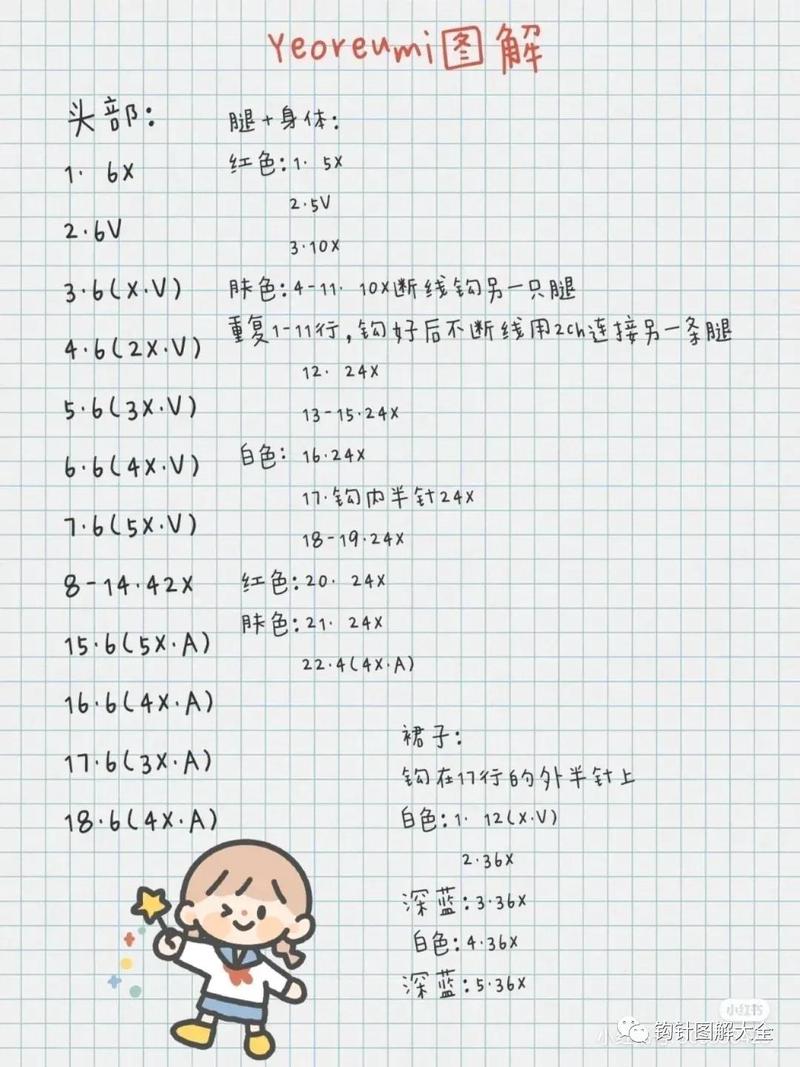 Yeoreumi图解
头部:
1. 6X
2.6V
3.6(X.V)
4.6(2X.V)
5.6(3X.V)
6.6(4X.V)
7.6(5X.V)
8-14.42X
15.6(5X.A)
16.6(4X.A)
17.6(3X.A)
18.6(4X.A)
腿+身体:
红色:1. 5X
2.5V
3.10X
肤色:4-11. 10X断线钩另一只腿
重复1-11行,钩好后不断线用2ch连接另一条腿
12. 24X
13-15.24X
白色: 16.24X
17.钩内半针24X
18-19.24X
红色:20. 24X
肤色:21. 24X
22.4(4X.A)
裙子:
钩在17行的外半针上
白色:1. 12(X.V)
2.36X
深蓝:3.36X
白色:4.36X
深蓝:5.36X
小红书
钩针图解大全